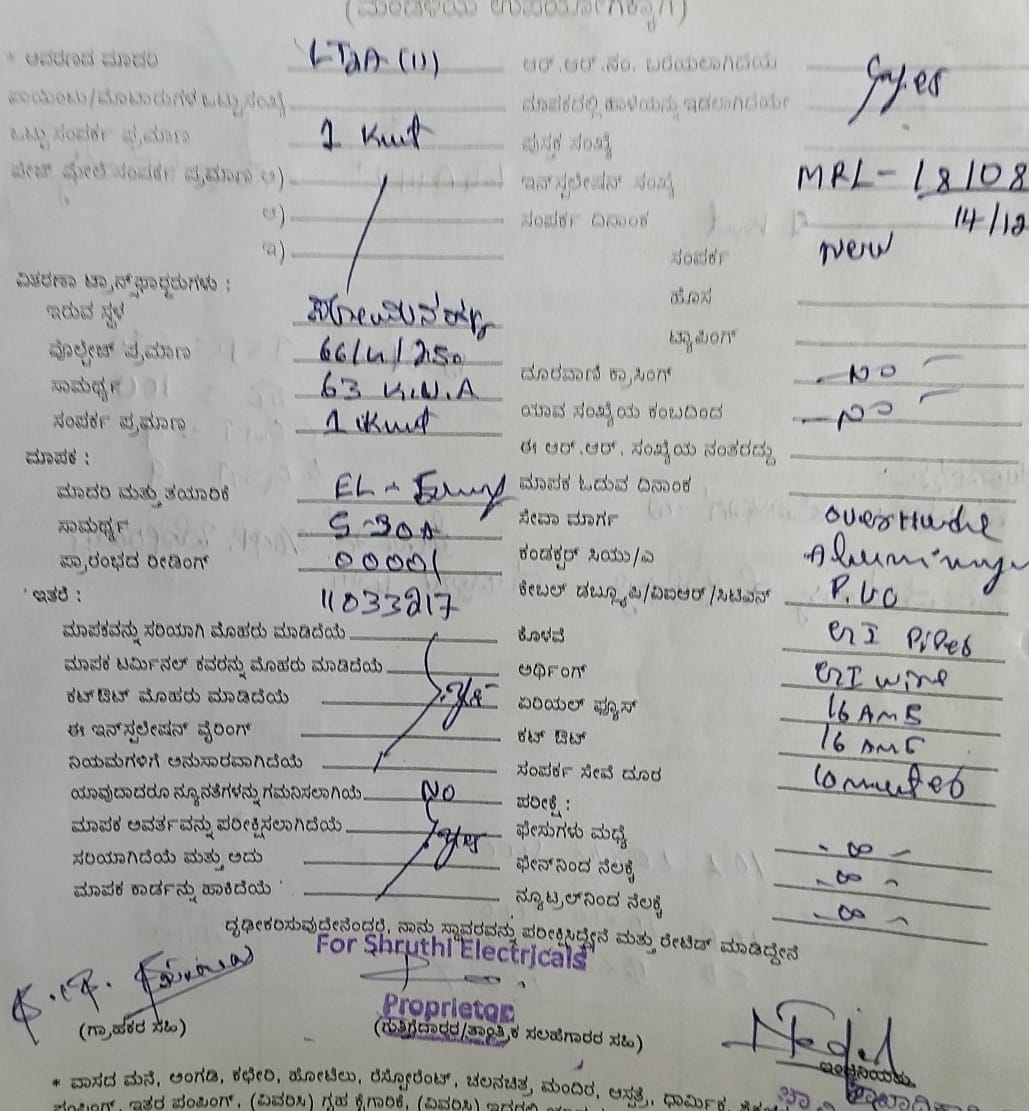 (ಮಂಡಳಿಯ ಉಪಯೋಗಕ್ಕಾಗಿ)
* ಆವರಣದ ಮಾದರಿ LT2A (11) ಆರ್.ಆರ್.ನಂ. ಬರೆಯಲಾಗಿದೆಯೆ yes
ಪಾಯಿಂಟು/ಮೋಟಾರುಗಳ ಒಟ್ಟು ಸಂಖ್ಯೆ ಮಾಪಕದಲ್ಲಿ ಹಾಳೆಯನ್ನು ಇಡಲಾಗಿದೆಯೇ
ಒಟ್ಟು ಸಂಪರ್ಕ ಪ್ರಮಾಣ 1 Kwt ಪುಸ್ತಕ ಸಂಖ್ಯೆ
ಪೇಜ್ ಮೇಲೆ ಸಂಪರ್ಕ ಪ್ರಮಾಣ ಅ) ಇನ್‌ಸ್ಟಲೇಷನ್ ಸಂಖ್ಯೆ MRL-18108
ಆ) ಸಂಪರ್ಕ ದಿನಾಂಕ 14/12
ಇ) ಸಂಪರ್ಕ New
ವಿತರಣಾ ಟ್ರಾನ್ಸ್‌ಫಾರ್ಮರುಗಳು :
ಇರುವ ಸ್ಥಳ ಹೊಸ
ವೋಲ್ಟೇಜ್ ಪ್ರಮಾಣ 250 ಟ್ಯಾಪಿಂಗ್
ಸಾಮರ್ಥ್ಯ 63 K.V.A ದೂರವಾಣಿ ಕ್ರಾಸಿಂಗ್ - NO -
ಸಂಪರ್ಕ ಪ್ರಮಾಣ 1 Kwt ಯಾವ ಸಂಖ್ಯೆಯ ಕಂಬದಿಂದ - NO -
ಮಾಪಕ : ಈ ಆರ್.ಆರ್. ಸಂಖ್ಯೆಯ ನಂತರದ್ದು
ಮಾದರಿ ಮತ್ತು ತಯಾರಿಕೆ EL - ಮಾಪಕ ಓದುವ ದಿನಾಂಕ
ಸಾಮರ್ಥ್ಯ 5-30A ಸೇವಾ ಮಾರ್ಗ
ಪ್ರಾರಂಭದ ರೀಡಿಂಗ್ 00001 ಕಂಡಕ್ಟರ್ ಸಿಯು/ಎ
ಇತರೆ : 11033217 ಕೇಬಲ್ ಡಬ್ಲ್ಯೂಪಿ/ವಿಐಆರ್/ಸಿಟಿಎಸ್ P.VC
ಮಾಪಕವನ್ನು ಸರಿಯಾಗಿ ಮೊಹರು ಮಾಡಿದೆಯೆ ಕೊಳವೆ GI Pipes
ಮಾಪಕ ಟರ್ಮಿನಲ್ ಕವರನ್ನು ಮೊಹರು ಮಾಡಿದೆಯೆ ಅರ್ಥಿಂಗ್ GI wire
ಕಟ್‌ಔಟ್ ಮೊಹರು ಮಾಡಿದೆಯೆ yes ಏರಿಯಲ್ ಫ್ಯೂಸ್ 16 AMS
ಈ ಇನ್‌ಸ್ಟಲೇಷನ್ ವೈರಿಂಗ್ ಕಟ್ ಔಟ್ 16 AMS
ನಿಯಮಗಳಿಗೆ ಅನುಸಾರವಾಗಿದೆಯೆ ಸಂಪರ್ಕ ಸೇವೆ ದೂರ
ಯಾವುದಾದರೂ ನ್ಯೂನತೆಗಳನ್ನು ಗಮನಿಸಲಾಗಿಯೆ No ಪರೀಕ್ಷೆ :
ಮಾಪಕ ಅವರ್ತವನ್ನು ಪರೀಕ್ಷಿಸಲಾಗಿದೆಯೆ yes ಫೇಸುಗಳು ಮಧ್ಯೆ - ∞ -
ಸರಿಯಾಗಿದೆಯೆ ಮತ್ತು ಅದು ಫೇಸ್‌ನಿಂದ ನೆಲಕ್ಕೆ - ∞ -
ಮಾಪಕ ಕಾರ್ಡನ್ನು ಹಾಕಿದೆಯೆ ನ್ಯೂಟ್ರಲ್‌ನಿಂದ ನೆಲಕ್ಕೆ - ∞ -
ದೃಢೀಕರಿಸುವುದೇನೆಂದರೆ, ನಾನು ಸ್ಥಾವರವನ್ನು ಪರೀಕ್ಷಿಸಿದ್ದೇನೆ ಮತ್ತು ರೇಟಿಡ್ ಮಾಡಿದ್ದೇನೆ
For Shruthi Electricals
Proprietor
(ಗ್ರಾಹಕರ ಸಹಿ) (ಗುತ್ತಿಗೆದಾರರ/ತಾಂತ್ರಿಕ ಸಲಹೆಗಾರರ ಸಹಿ)
ಇಂಜಿನಿಯರು
* ವಾಸದ ಮನೆ, ಅಂಗಡಿ, ಕಛೇರಿ, ಹೋಟೆಲು, ರೆಸ್ಟೋರೆಂಟ್, ಚಲನಚಿತ್ರ, ಮಂದಿರ, ಆಸ್ಪತ್ರೆ, ಧಾರ್ಮಿಕ,
ಪಂಪಿಂಗ್, ಇತರ ಪಂಪಿಂಗ್, (ವಿವರಿಸಿ) ಗೃಹ ಕೈಗಾರಿಕೆ, (ವಿವರಿಸಿ)